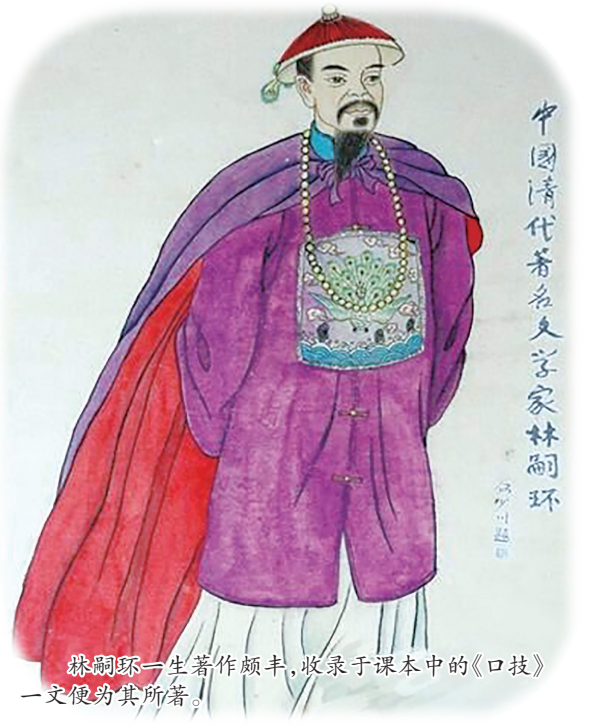 中國清代著名文学家林嗣环
林嗣环一生著作颇丰,收录于课本中的《口技》
一文便为其所著。